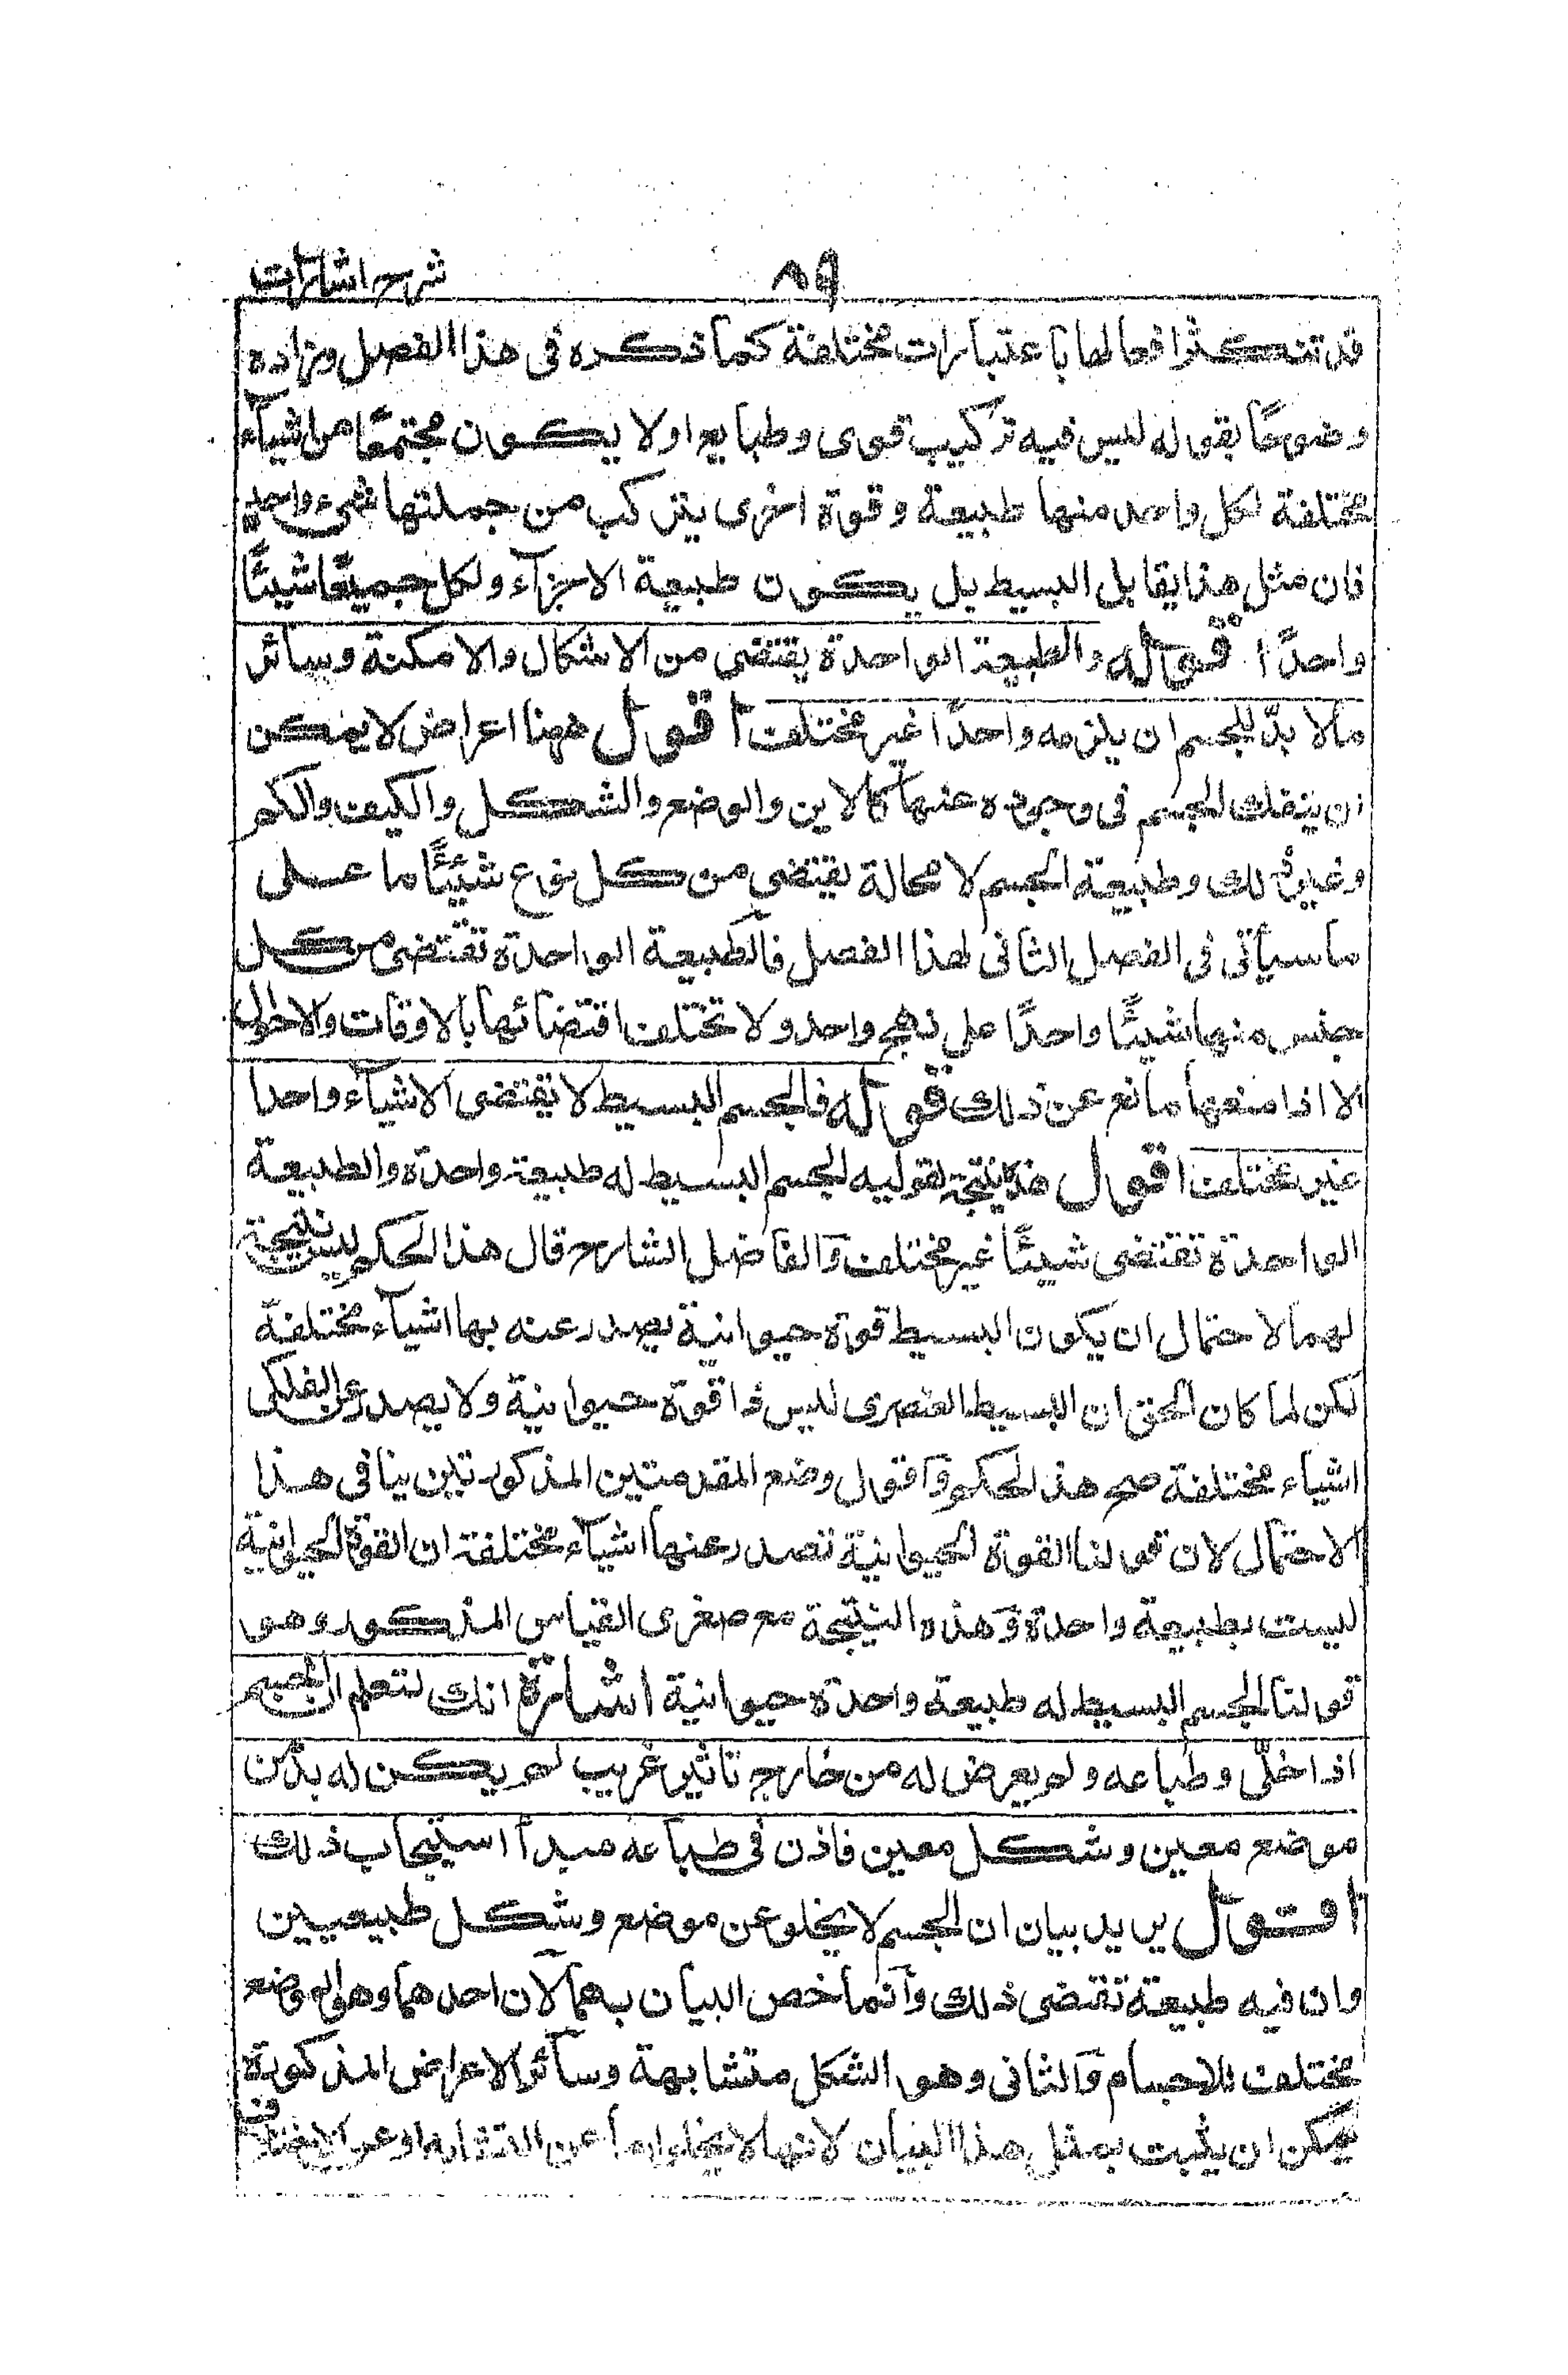 شرح اشارات
٨٩
قد تتكثر افعالها باعتبارات مختلفة كما ذكره فى هذا الفصل وزاده
وضوحًا بقوله ليس فيه تركيب قوى وطبايع اولا يكون مجتمعًا من اشيآء
مختلفة لكل واحد منها طبيعة وقوة اخرى يتركب من جملتها شىء واحد
فان مثل هذا يقابل البسيط بل يكون طبيعة الاجزآء ولكل جميعًا شيئًا
واحدًا قوله والطبيعة الواحدة يقتضى من الاشكال والامكنة وسائر
مالا بدّ للجسم ان يلزمه واحدًا غير مختلف اقول ههنا اعراض لا يمكن
ان ينفك الجسم فى وجوده عنها كالاين والوضع والشكل والكيف والكم
وغير ذلك وطبيعة الجسم لا محالة يقتضى من كل نوع شيئًا ما على
ما سيأتى فى الفصل الثانى لهذا الفصل فالطبيعة الواحدة تقتضى من كل
جنس منها شيئًا واحدًا على نهج واحد ولا تختلف اقتضائها بالاوقات والاحوال
الا اذا منعها مانع عن ذلك قوله فالجسم البسيط لا يقتضى الا شيآء واحدا
غير مختلف اقول هذه نتيجة لقوليه الجسم البسيط له طبيعة واحدة والطبيعة
الواحدة تقتضى شيئًا غير مختلف والفاضل الشارح قال هذا الحكم ليس نتيجة
لهما لاحتمال ان يكون البسيط قوة حيوانية يصدر عنه بها اشيآء مختلفة
لكن لما كان الحق ان البسيط العنصرى ليس ذا قوة حيوانية ولا يصدر عن الفلكى
اشياء مختلفة صح هذ الحكم وآقول وضع المقدمتين المذكورتين ينافى هذا
الاحتمال لان قولنا القوة الحيوانية تصدر عنها اشيآء مختلفة ان القوة الحيوانية
ليست بطبيعة واحدة وهذه النتيجة مع صغرى القياس المذكور وهو
قولنا الجسم البسيط له طبيعة واحدة حيوانية اشارة انك لتعلم ان الجسم
اذا خلّى وطباعه ولم يعرض له من خارج تاثير غريب لم يكن له بدّ من
موضع معين وشكل معين فاذن فى طباعه مبدأ استيجاب ذلك
اقول يريد بيان ان الجسم لا يخلو عن موضع وشكل طبيعيين
وان فيه طبيعة تقتضى ذلك وآنما خص البيان بهما لآن احدهما وهو الموضع
مختلف للاجسام والثانى وهو الشكل متشابهة وسآئر الاعراض المذكورة
يمكن ان يثبت بمثل هذا البيان لانها لا يخلوا ما عن التشابه او عن الاختلاف